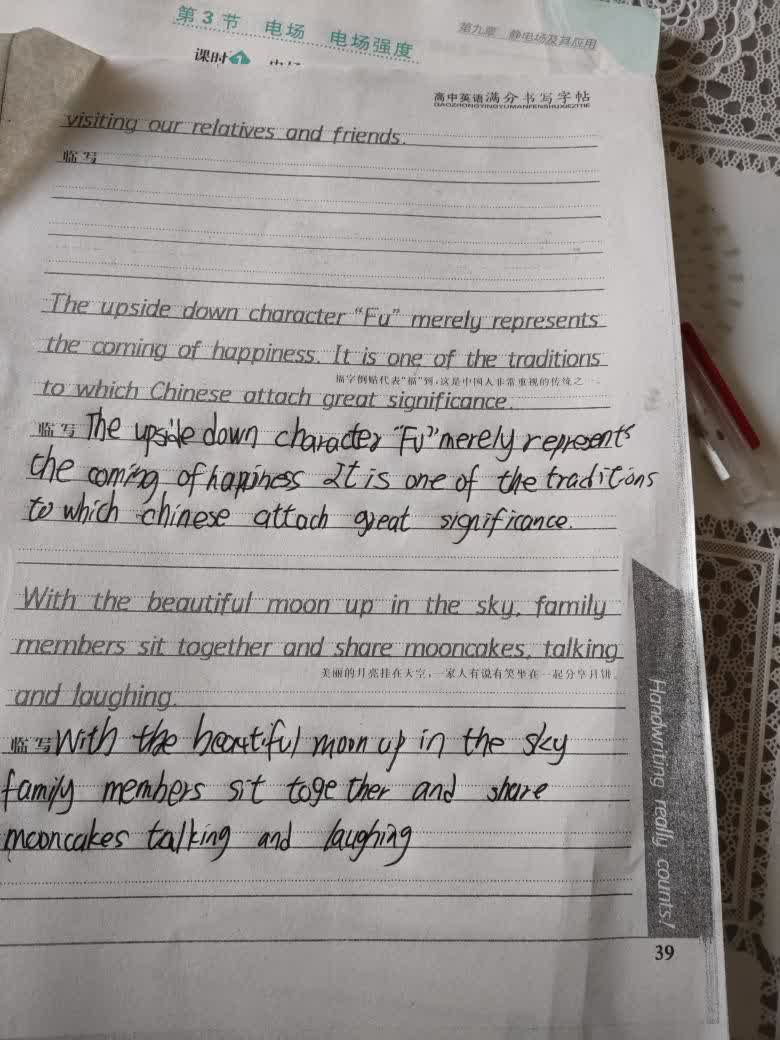 第3节 电场 电场强度
第九章 静电场及其应用
课时1
高中英语满分书写字帖
GAOZHONGYINGYUMANFENSHUXIEZITIE
visiting our relatives and friends.
临写
The upside down character "Fu" merely represents
the coming of happiness. It is one of the traditions
福字倒贴代表"福"到,这是中国人非常重视的传统之一。
to which Chinese attach great significance.
临写 The upside down character "Fu" merely represents
the coming of happiness It is one of the traditions
to which chinese attach great significance.
With the beautiful moon up in the sky, family
members sit together and share mooncakes, talking
美丽的月亮挂在天空,一家人有说有笑坐在一起分享月饼。
and laughing.
临写 With the beautiful moon up in the sky
family members sit together and share
mooncakes talking and laughing
Handwriting really counts!
39